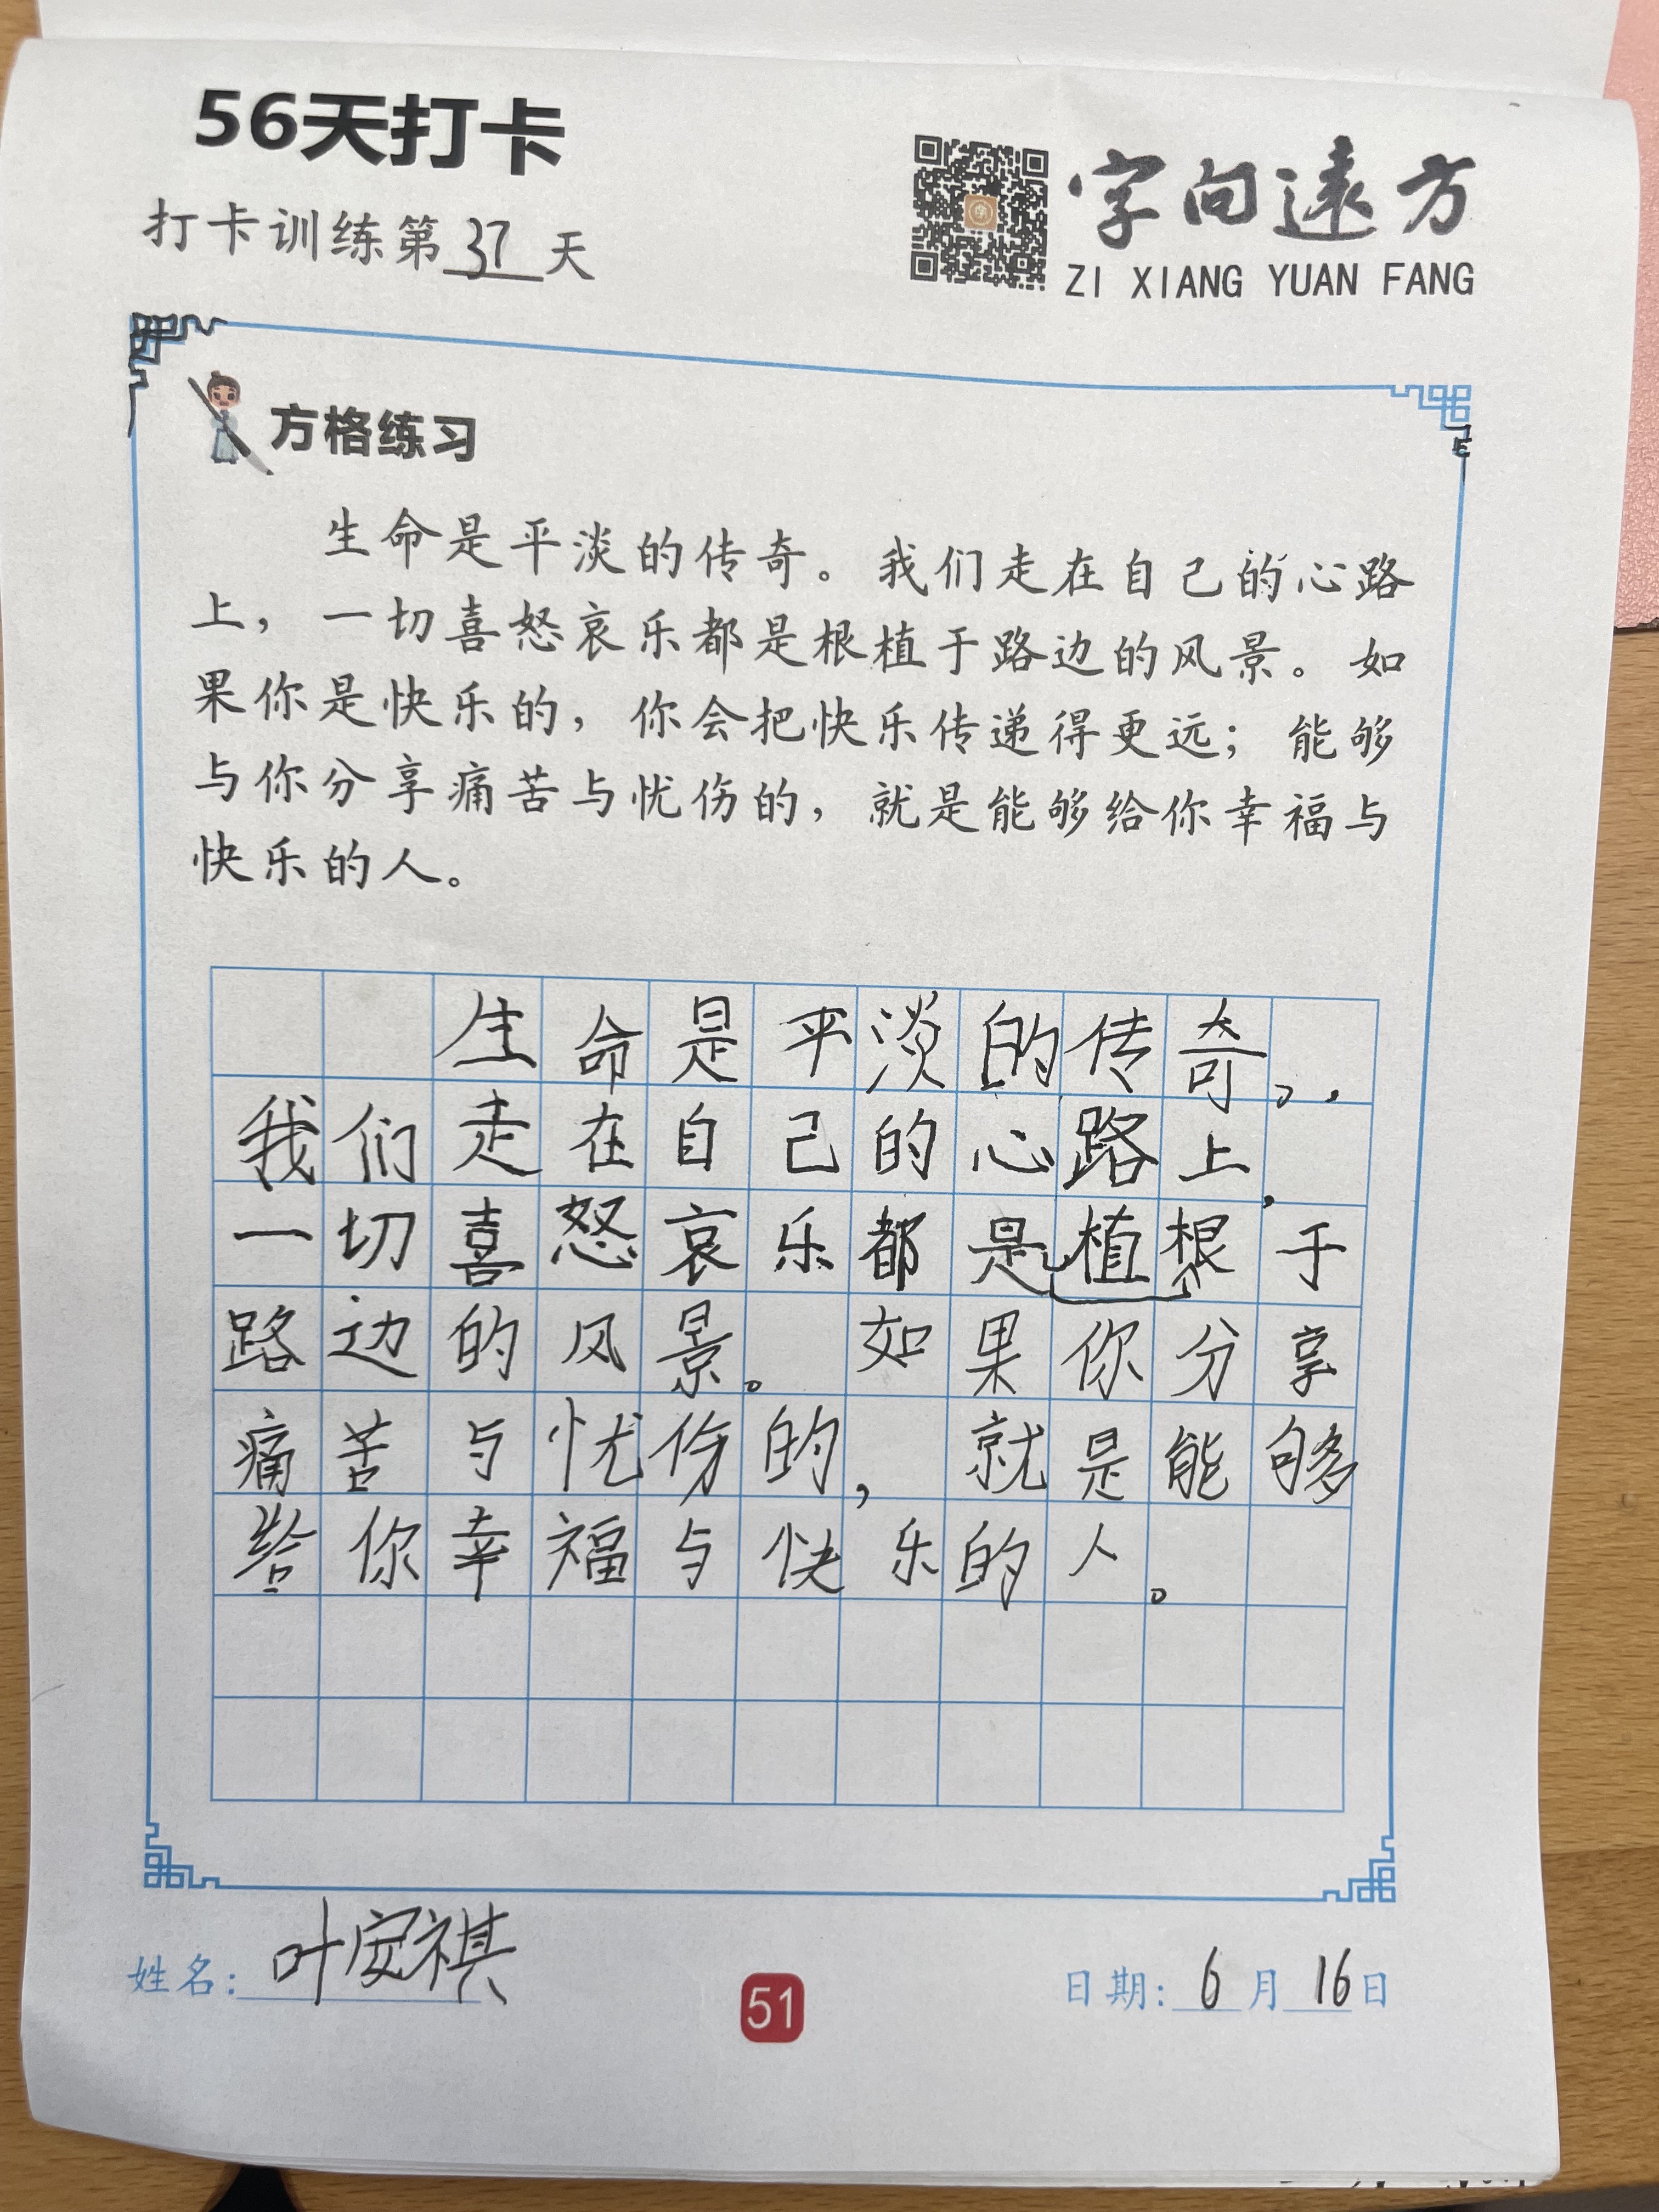 56天打卡
打卡训练第37天
字向远方
ZI XIANG YUAN FANG
方格练习
生命是平淡的传奇。我们走在自己的心路
上，一切喜怒哀乐都是根植于路边的风景。如
果你是快乐的，你会把快乐传递得更远；能够
与你分享痛苦与忧伤的，就是能够给你幸福与
快乐的人。
生命是平淡的传奇。
我们走在自己的心路上，
一切喜怒哀乐都是植根于
路边的风景。如果你分享
痛苦与忧伤的，就是能够
给你幸福与快乐的人。
姓名：叶安祺
51
日期：6月16日